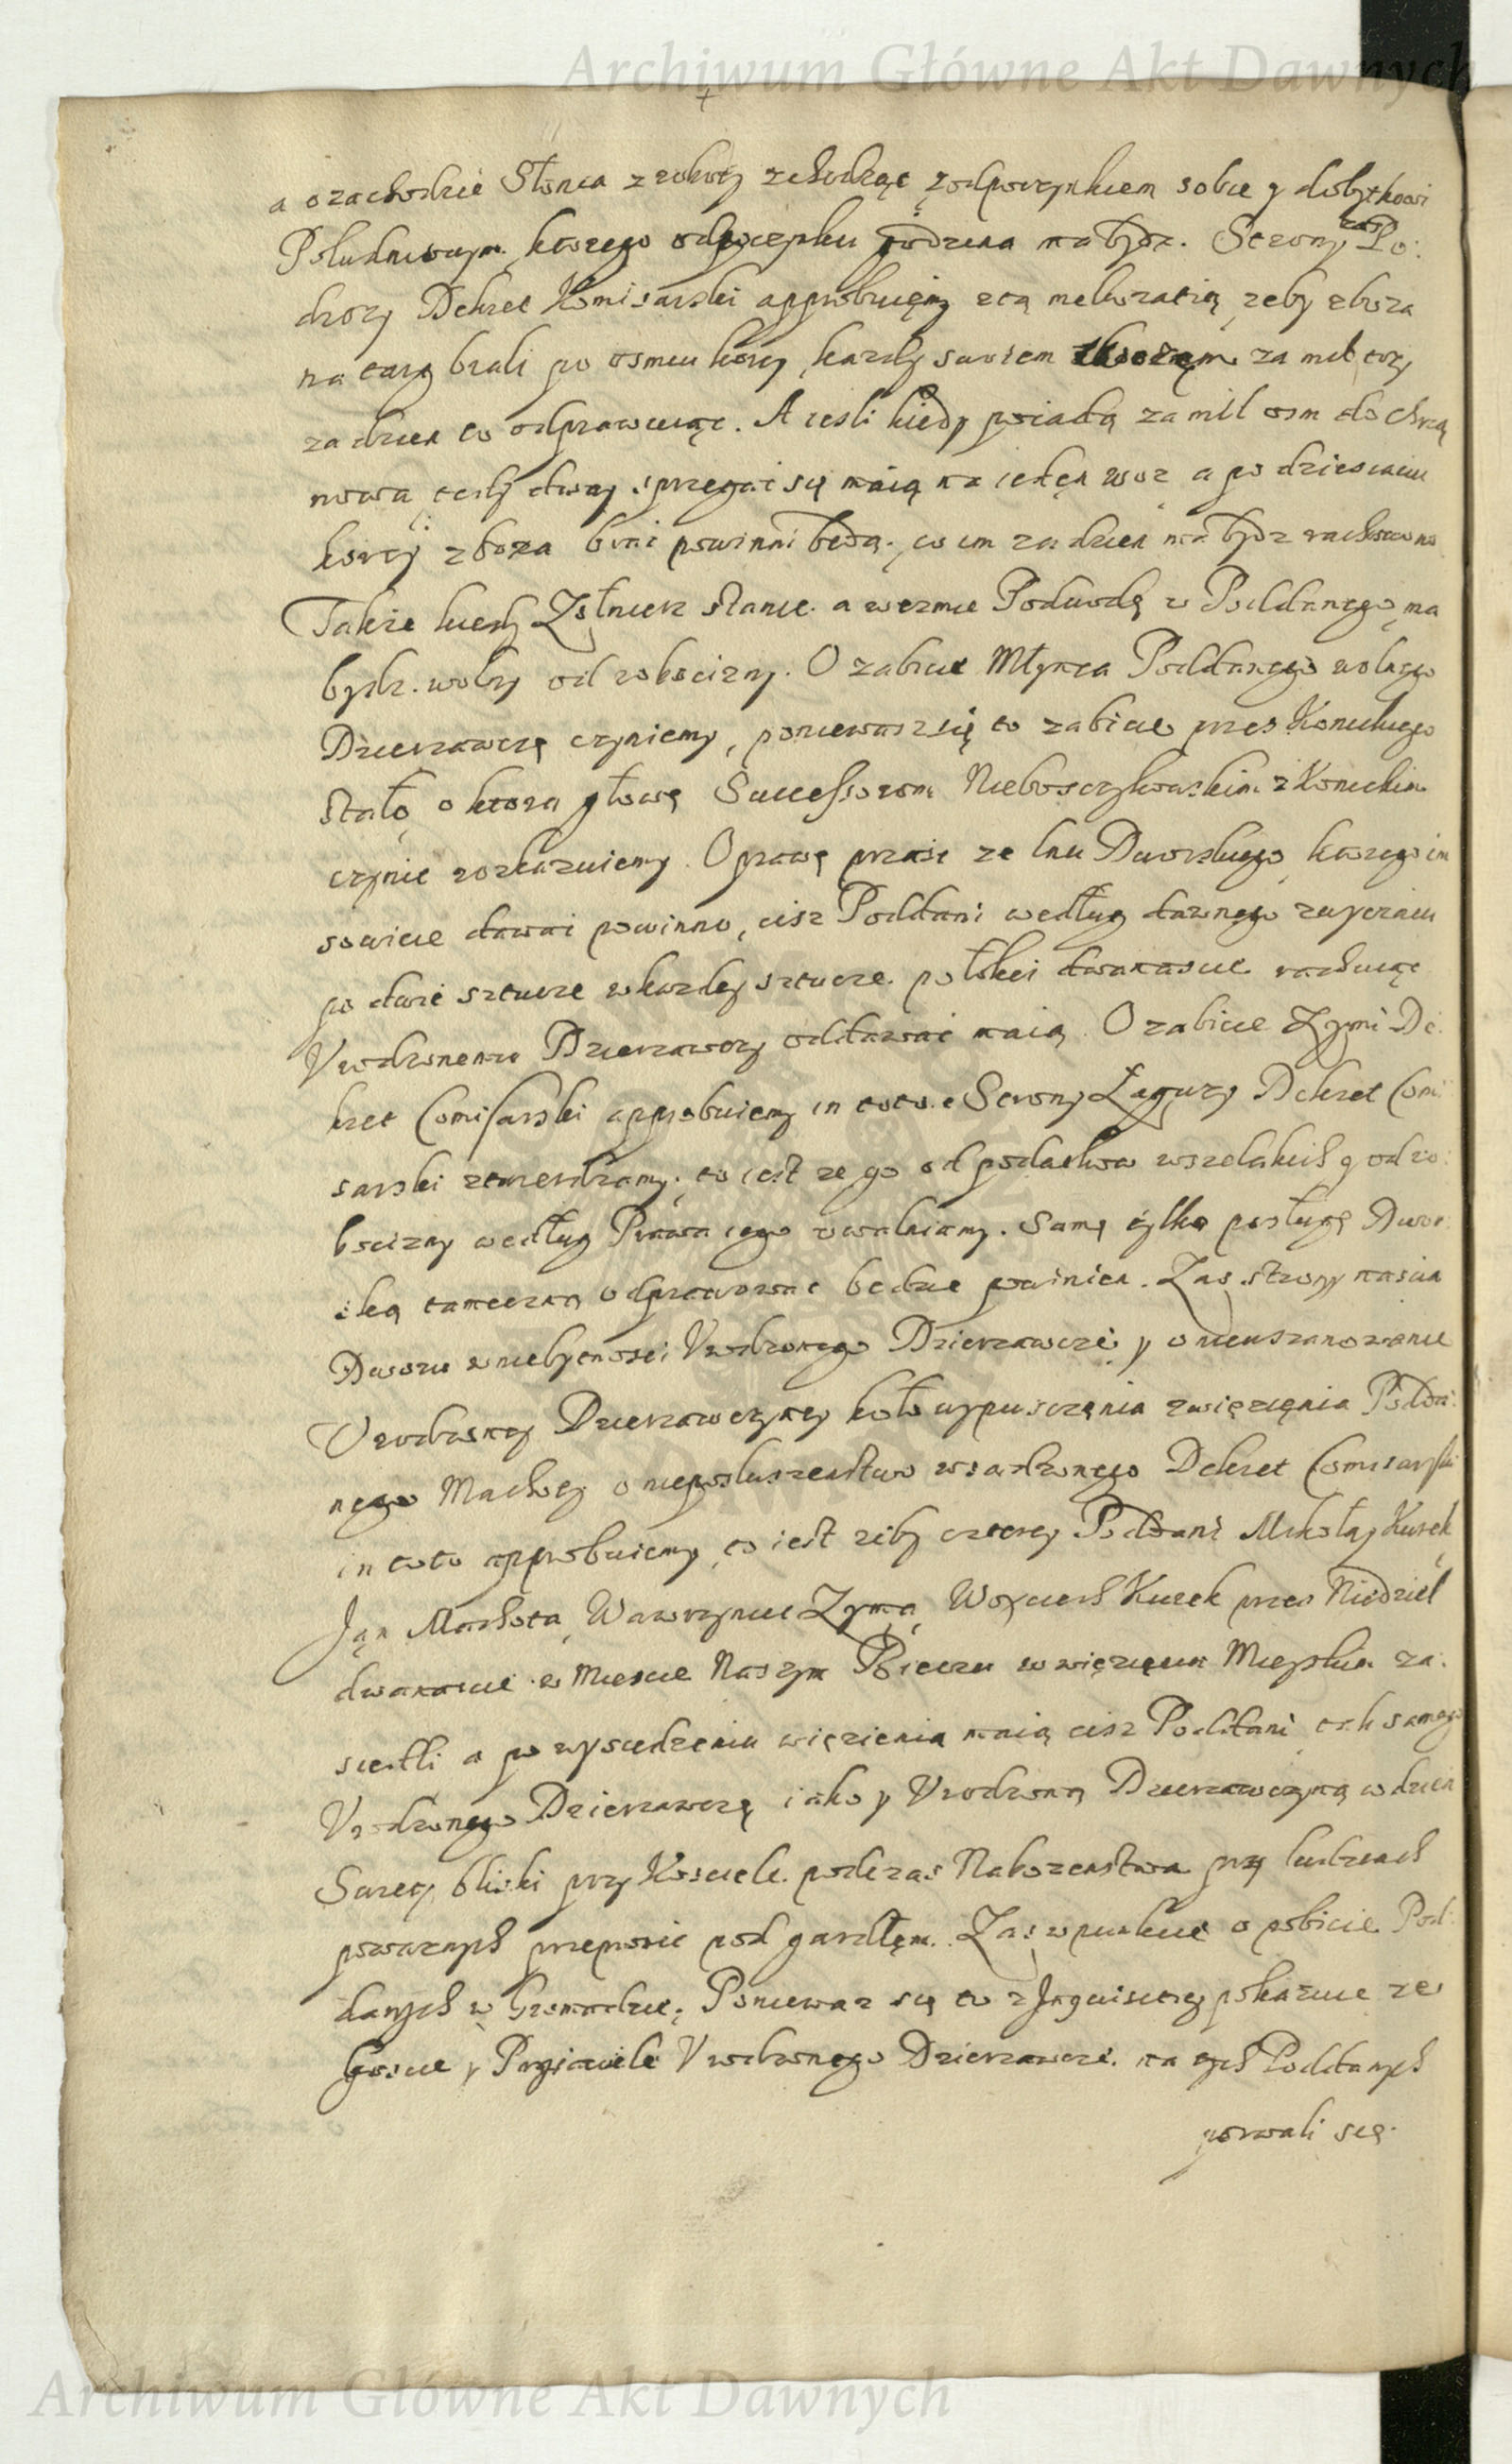 Archiwum Główne Akt Dawnych
a o zachodzie Słonca z roboty zchodząc z odpoczynkiem sobie y dobytkowi
Południowym. ktorego odpoczynku godzina ma bydz. Strony zas Po:
drozy Dekret Komisarski approbuięmy z tą melioratią, zeby zboza
na targ brali po osmiu korcy, kazdy swoiem za mil trzy
za dzien to odprawuiąc. A iesli kiedy poiadą za mil osm do Chrza
nowa, tedy dway sprzegać się maią na ieden woz, a po dziesiąciu
korcy zboza brać powinni będą. co im za dzien ma bydz rachowano
Takze kiedy Zołnierz stanie. a wezmie Podwodę v Poddanego, ma
bydz. wolny od robocizny. O zabicie Młynca Poddanego wolnego
Dzierzawcę czyniemy, poniewasz się to zabicie przes Koniukiego
stało, o ktora głowę Successorom Nieboszczykowskim z Koniuckim
czynic rozkazuiemy. Oprawę przasc ze lnu Dworskiego, ktorego im
sowicie dawać powinno, cisz Poddani według dawnego zwyczaiu
po dwie sztuce w kazdey sztuce. po łokci dwanascie rachuiąc
Vrodzonemu Dzierzawcy oddawać maią. O zabicie Zymi De:
kret Comisarski approbuiemy in toto. Strony Łagury Dekret Comi
sarski ztwierdzamy; to iest ze go od podatkow wszelakich y od ro:
bocizny według Prawa iego vwalniamy. Samę tylko posługę Dwor
ską tameczną odprawować będzie powinien. Zas strony nascia
Dworu w niebytnosci Vrodzonego Dzierzawcze y o nieuszanowanie
Vrodzoney Dzierzawczyney koło wypusczęnia z więzięnia Podda:
nego Machoty o nieposłuszenstwo wsadzonego Dekret Comisarski
in toto approbuiemy, to iest zeby czterey Poddani Mikołay Kurek,
Ján Machota, Wawrzyniec Zyma, Woyciech Kurek przez Niedziel
dwanascie w Miescie Naszym Bieczu w więzięniu Mieyskim za:
siedli a po wysiedzeniu więzienia maią cisz Poddani tak samego
Vrodzonego Dzierzawcę iako y Vrodzoną Dzierzawczyną w dzien
Swięty bliski przy Kosciele. podczas Nabozenstwa przy ludziach
powaznych przeprosic pod gardłęm. Zas w punkcie o pobicie Pod:
danych w Gromadzie; Poniewaz się to z Inquisitiey pokazuie ze
Goscie y Przyiaciele Vrodzonego Dzierzawce. na tych Poddanych
porwali się.
Archiwum Główne Akt Dawnych